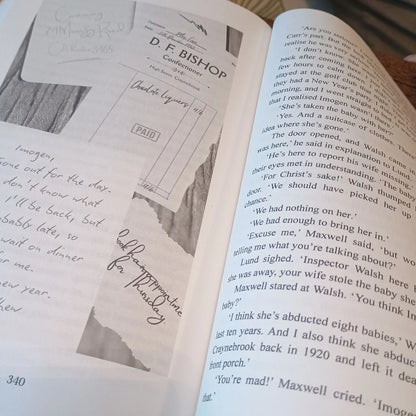 D. F. BISHOP
Confectioner
High Street, Craynebrook
Chocolate liqueurs 4/6
PAID
Imogen,
one out for the day.
don't know what
I'll be back, but
bably late, so
wait on dinner
or me.
new year.
thew
for Thursday
340
'Are you
Carr's part.
realise he was
'I don't know
back after coming
few hours to calm
stayed at the golf
they had a New Year's
morning, and I went straight
that I realised Imogen wasn't
'She's taken the baby with her
'Yes. And a suitcase of clothes.
idea where she's gone.'
The door opened, and Walsh came
was here,' he said in explanation to Lund
'He's here to report his wife missing,
their eyes met in understanding. 'The baby
'For Christ's sake!' Walsh thumped
door. 'We should have picked her up
chance.'
'We had nothing on her.'
'We had enough to bring her in.'
'Excuse me,' Maxwell said, 'but wo
telling me what you're talking about?'
Lund sighed. 'Inspector Walsh here b
she was away, your wife stole the baby she
Maxwell stared at Walsh. 'You think Im
baby?'
'I think she's abducted eight babies,' W
last ten years. And I also think she abduc
Craynebrook back in 1920 and left it dea
front porch.'
'You're mad!' Maxwell cried. 'Imoge
that.'